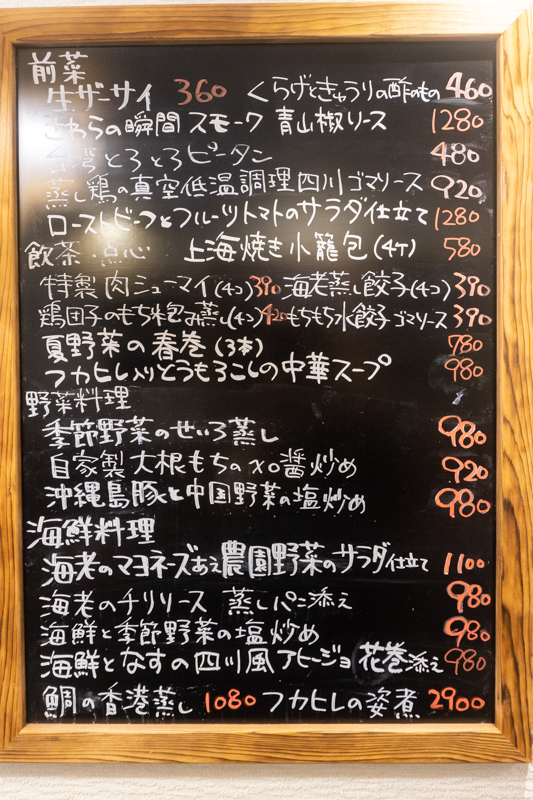 前菜
生ザーサイ 360 くらげときゅうりの酢のもの 460
さわらの瞬間スモーク 青山椒ソース 1280
台湾とろとろピータン 480
蒸し鶏の真空低温調理四川ゴマソース 920
ローストビーフとフルーツトマトのサラダ仕立て 1280
飲茶・点心 上海焼き小籠包(4ケ) 580
特製肉シューマイ(4コ)390 海老蒸し餃子(4コ) 390
鶏団子のもち米包み蒸し(4コ)420 もちもち水餃子ゴマソース 390
夏野菜の春巻(3本) 780
フカヒレ入りとうもろこしの中華スープ 980
野菜料理
季節野菜のせいろ蒸し 980
自家製大根もちのXO醤炒め 920
沖縄島豚と中国野菜の塩炒め 980
海鮮料理
海老のマヨネーズあえ農園野菜のサラダ仕立て 1100
海老のチリソース 蒸しパン添え 980
海鮮と季節野菜の塩炒め 980
海鮮となすの四川風アヒージョ 花巻添え 980
鯛の香港蒸し 1080 フカヒレの姿煮 2900